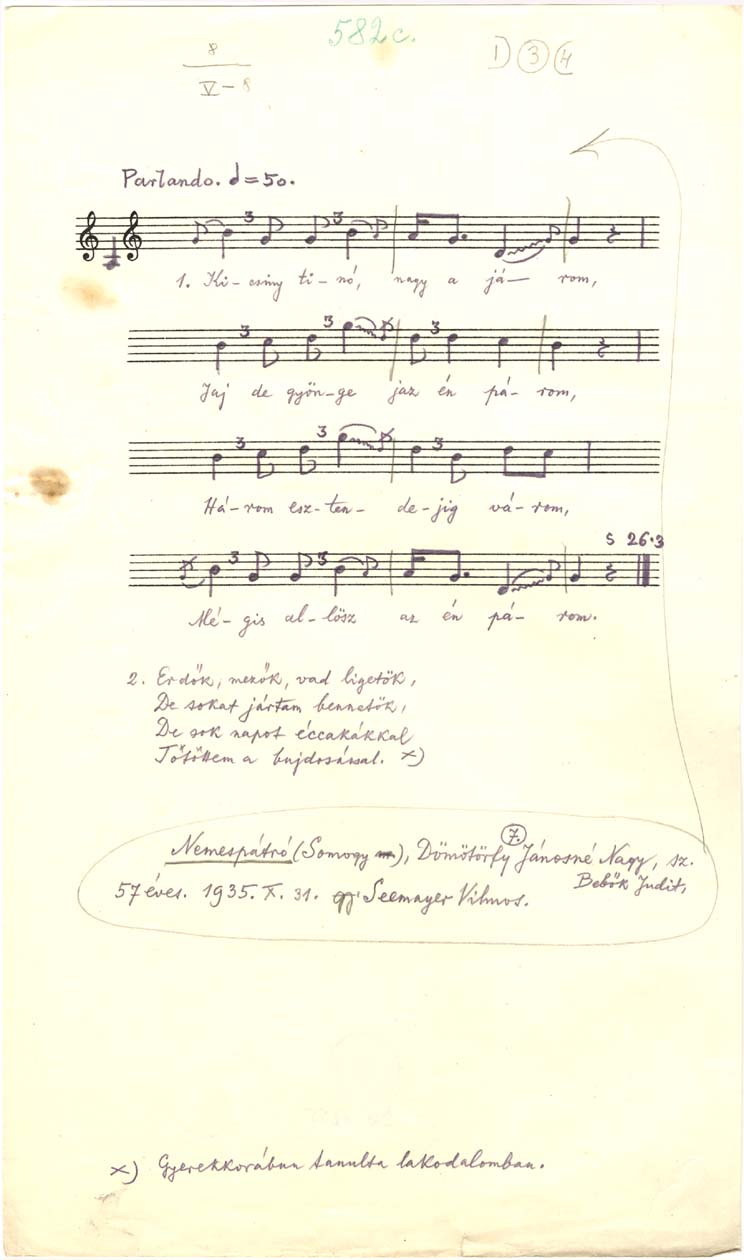 582c.
8
V-8
1) 3 4
Parlando. = 50.
3 3
1. Ki- csiny ti- nó, nagy a já- rom,
3 3
Jaj de gyön-ge jaz én pá- rom,
3 3 3
Há- rom esz-ten- de-jig vá- rom,
S 26.3
3 3
Mé- gis al-lösz az én pá- rom.
2. Erdők, mezők, vad ligetök,
De sokat jártam bennetök,
De sok napot éccakákkal
Tőtöttem a bujdosással. x)
7.
Nemespátró (Somogy), Dömötörfy Jánosné Nagy, sz.
Bebők Judit,
57 éves. 1935. X. 31. gy. Seemayer Vilmos.
x) Gyerekkorában tanulta lakodalomban.